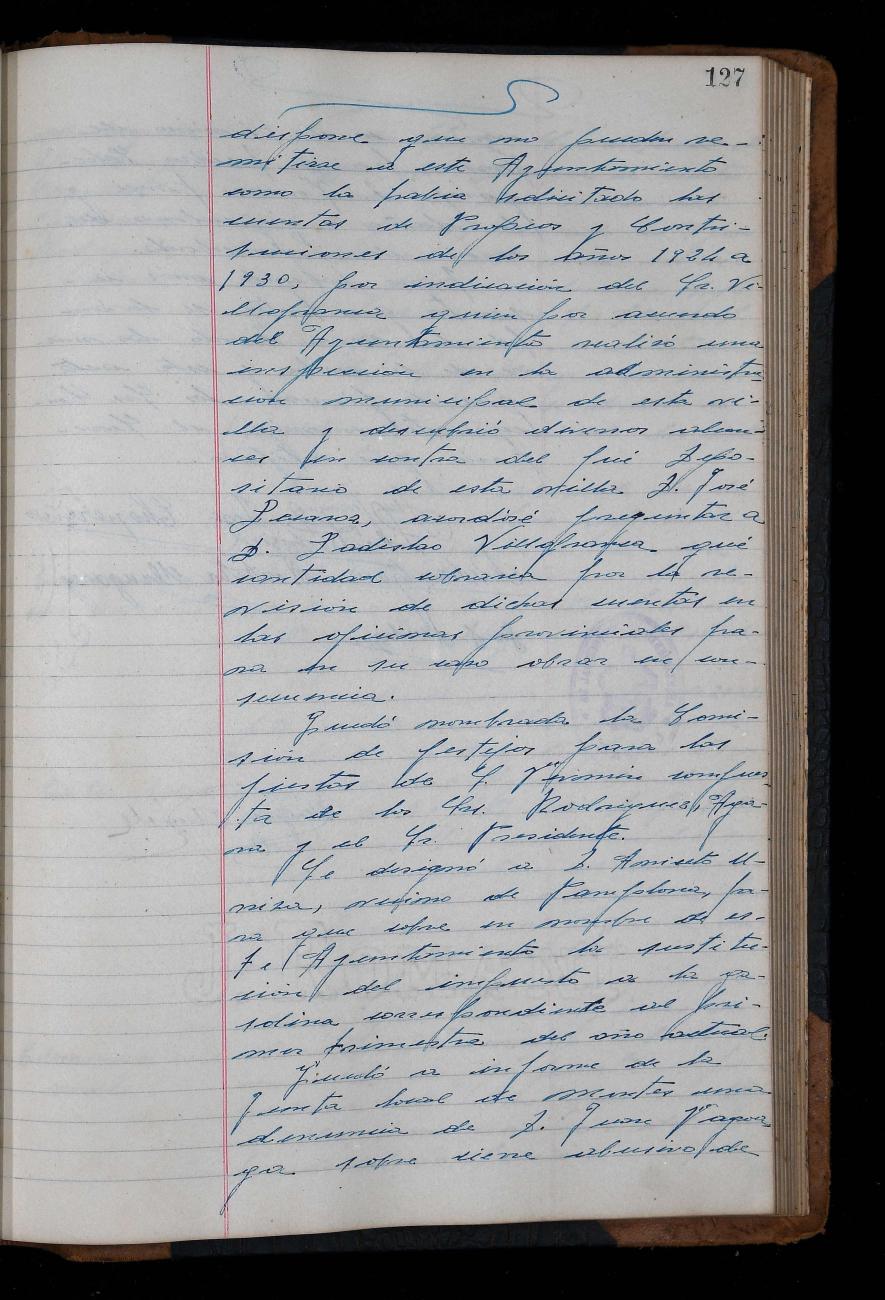 127
dispone que no pueden re-
mitirse a este Ayuntamiento
como lo había solicitado las
cuentas de Propios y Contri-
buciones de los años 1924 a
1930, por indicación del Sr. Vi-
llafranca quien por acuerdo
del Ayuntamiento realizó una
inspección en la administra-
ción municipal de esta vi-
lla y descubrió diversos alcan-
ces en contra del que fué Depo-
sitario de esta villa D. José
acordóse preguntar a
D. Ladislao Villafranca qué
cantidad cobraría por la re-
visión de dichas cuentas en
las oficinas provinciales pa-
ra en su caso obrar en con-
secuencia.
Quedó nombrada la Comi-
sión de festejos para las
fiestas de S. Fermín compues-
ta de los Srs. Rodríguez,
y el Sr. Presidente.
Se designó a D. Aniceto U-
niza, vecino de Pamplona, pa-
ra que cobre en nombre de es-
te Ayuntamiento la sustitu-
ción del impuesto a la ga-
solina correspondiente al pri-
mer trimestre del año actual.
Quedó a informe de la
Junta local de montes una
denuncia de D. Juan
sobre cierre abusivo de